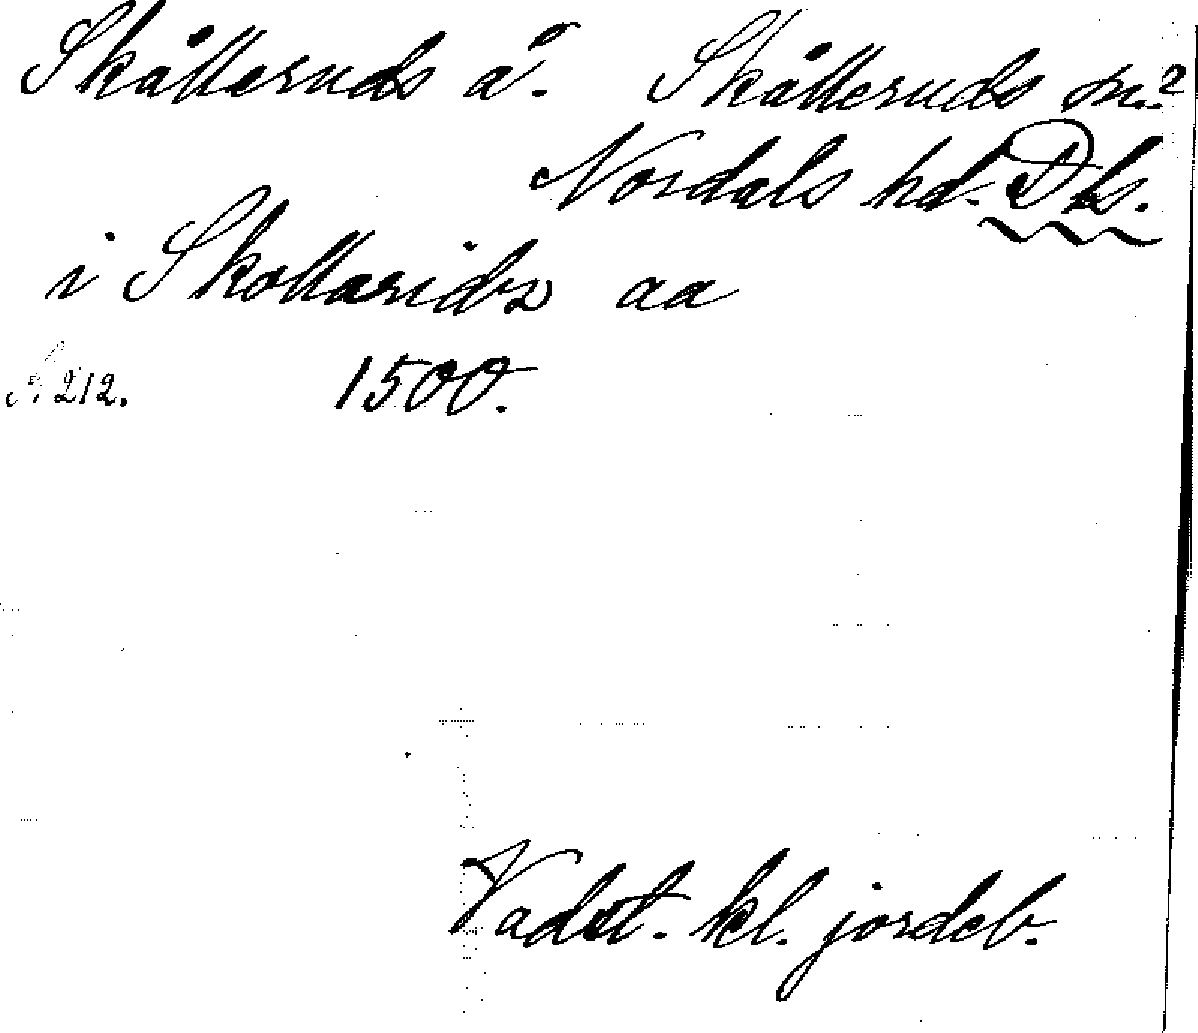 Skålleruds å. Skålleruds sn?
Nordals hd. Dls.
i Skollaridz aa
212. 1500.
Vadst. kl. jordeb.